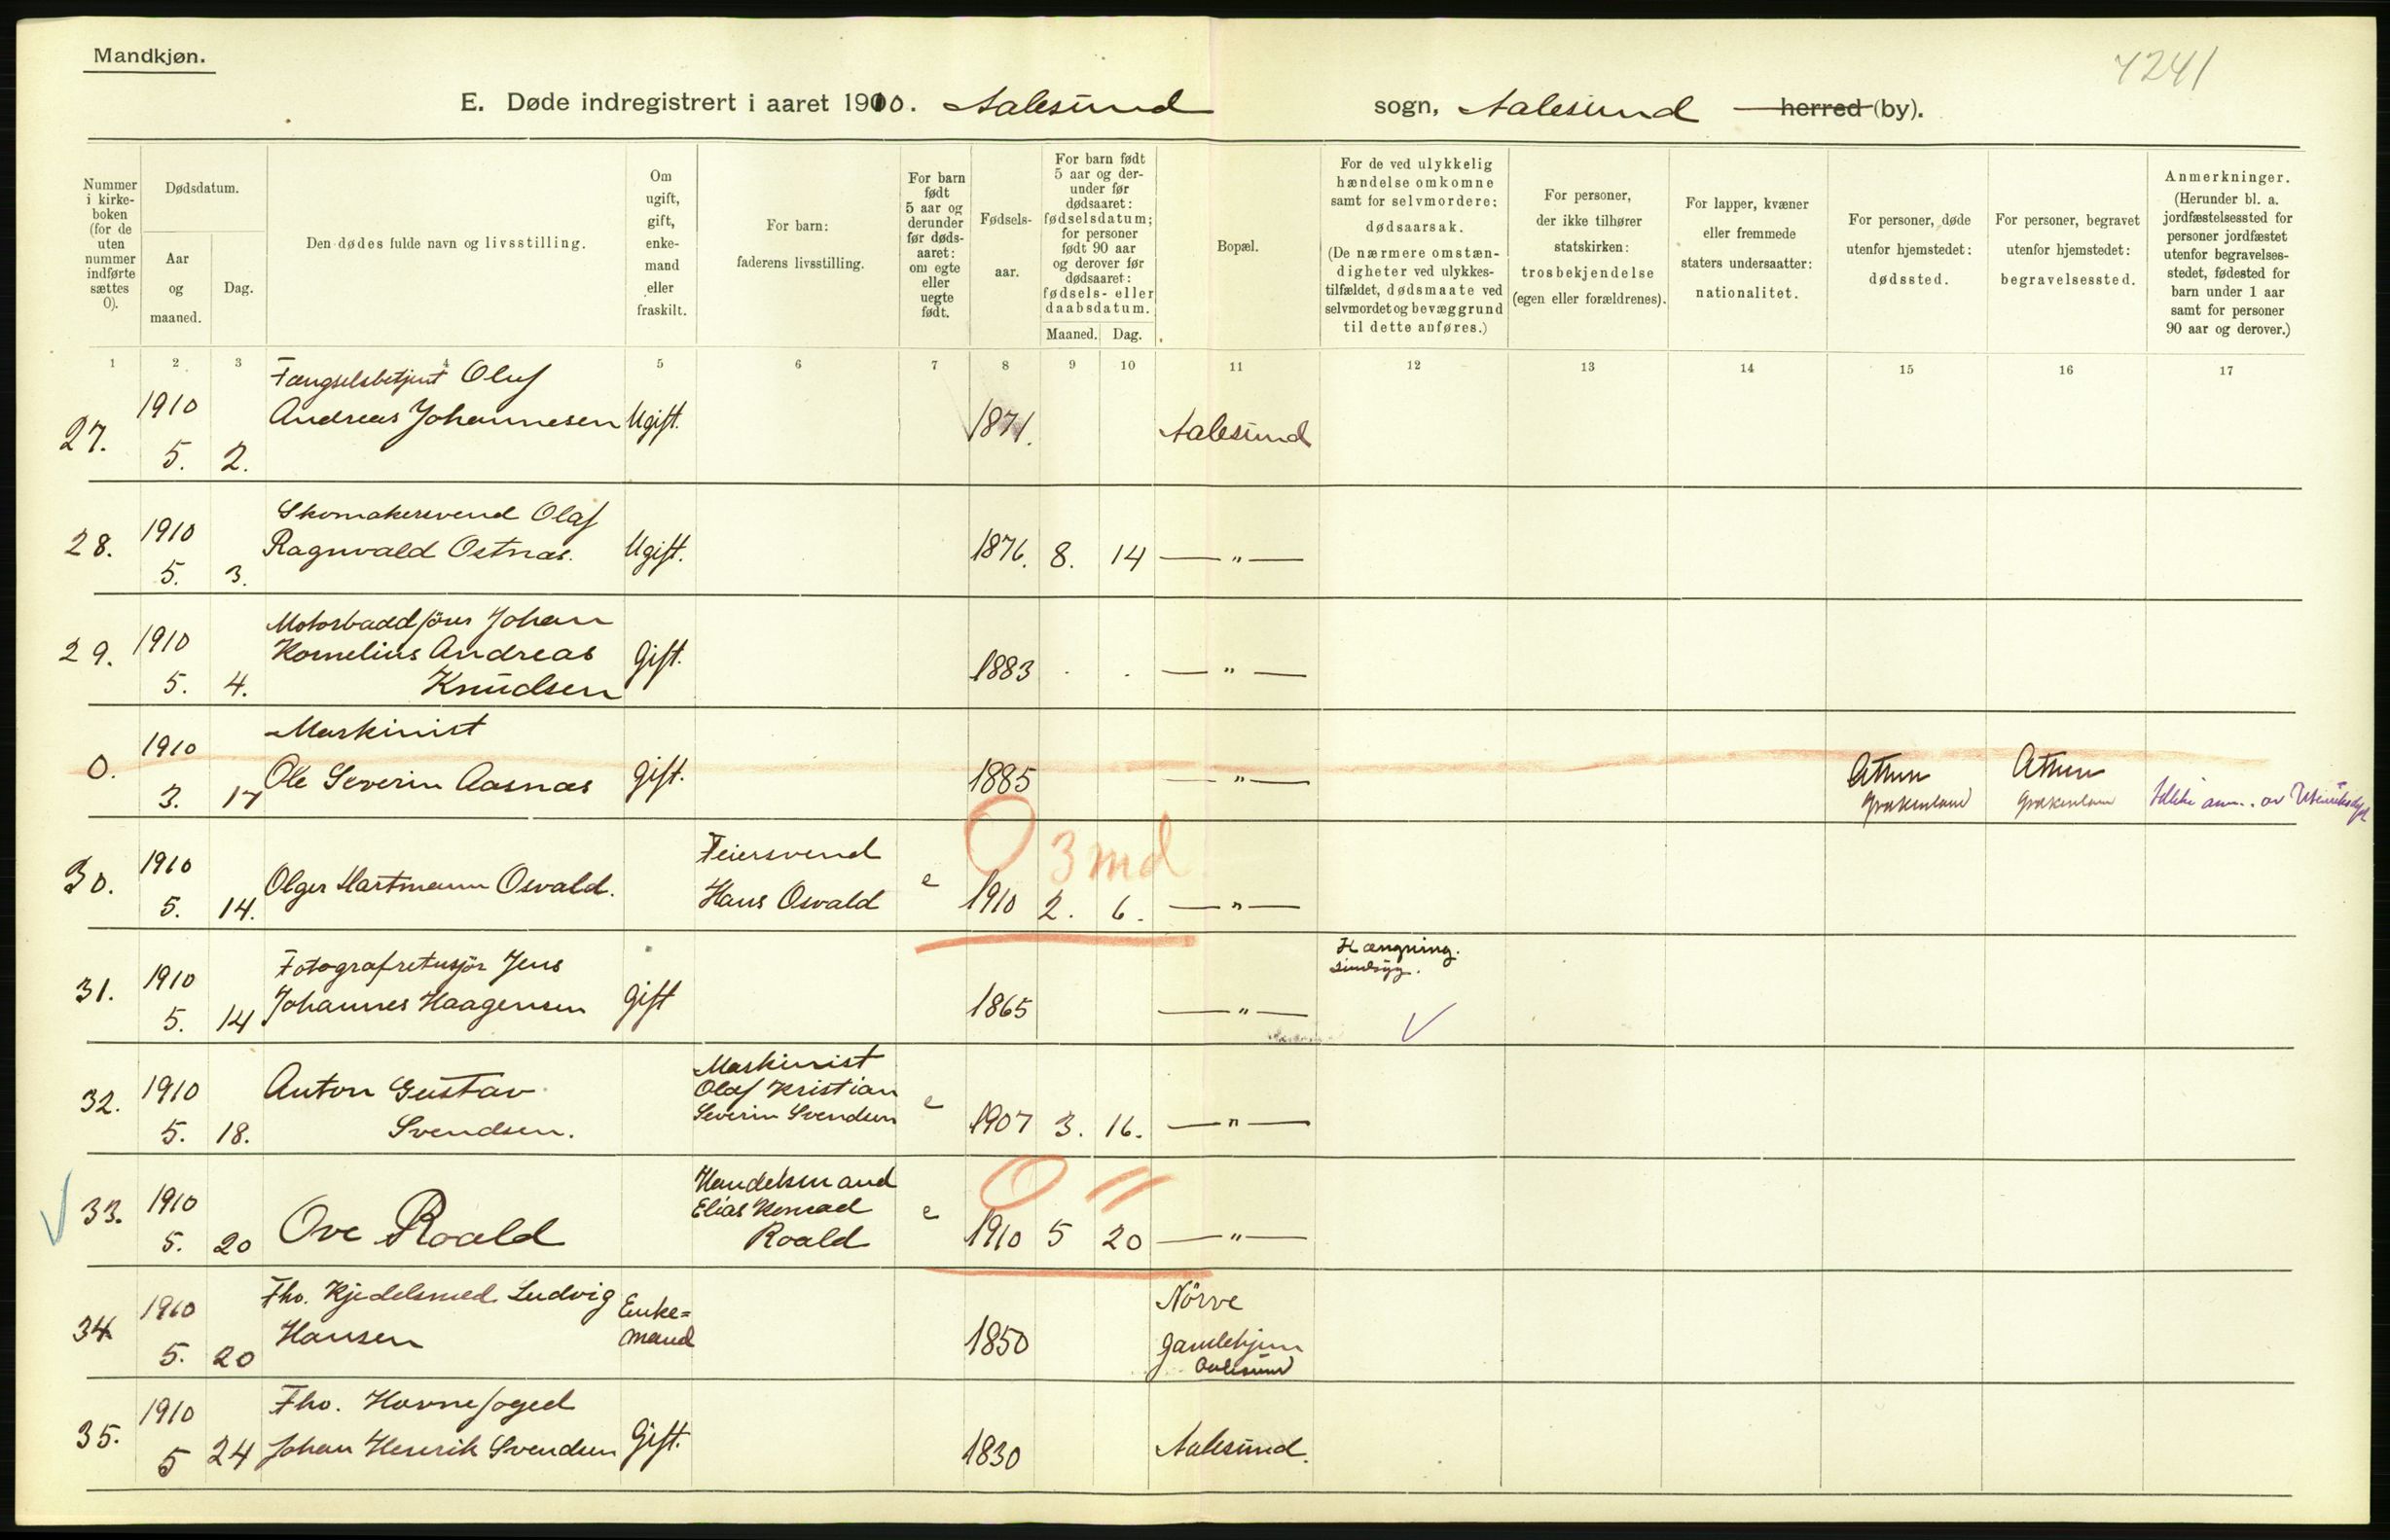 Mandkjøn.
4241
E. Døde indregistrert i aaret 1910. Aalesund sogn, Aalesund herred (by).
Nummer i kirke-boken (for de uten nummer indførte sættes 0).
Dødsdatum.
Aar og maaned.
Dag.
Den dødes fulde navn og livsstilling.
Om ugift, gift, enke-mand eller fraskilt.
For barn: faderens livsstilling.
For barn født 5 aar og derunder før døds-aaret: om egte eller uegte født.
Fødsels-aar.
For barn født 5 aar og der-under før dødsaaret: fødselsdatum; for personer født 90 aar og derover før dødsaaret: fødsels- eller daabsdatum.
Maaned.
Dag.
Bopæl.
For de ved ulykkelig hændelse omkomne samt for selvmordere: dødsaarsak. (De nærmere omstæn-digheter ved ulykkes-tilfældet, dødsmaate ved selvmordet og bevæggrund til dette anføres.)
For personer, der ikke tilhører statskirken: trosbekjendelse (egen eller forældrenes).
For lapper, kvæner eller fremmede staters undersaatter: nationalitet.
For personer, døde utenfor hjemstedet: dødssted.
For personer, begravet utenfor hjemstedet: begravelsessted.
Anmerkninger. (Herunder bl. a. jordfæstelsessted for personer jordfæstet utenfor begravelses-stedet, fødested for barn under 1 aar samt for personer 90 aar og derover.)
1 2 3 4 5 6 7 8 9 10 11 12 13 14 15 16 17
27. 1910 5. 2. Fængselsbetjent Oluf
Andreas Johannesen Ugift. 1871. Aalesund
28. 1910 5. 3. Skomakersvend Olaf
Ragnvald Ostnas. Ugift. 1876. 8. 14 — " —
29. 1910 5. 4. Motorbaadfører Johan
Kornelius Andreas
Knudsen Gift. 1883 — " —
0. 1910 3. 17 Maskinist
Ole Severin Aasnæs Gift. 1885 — " — Athen Grækenland Athen Grækenland Ikke
30. 1910 5. 14. Olger Hartmann Osvald. Feiersvend
Hans Osvald e 1910 2. 6. — " —
0 3 md
31. 1910 5. 14 Fotografretusjør Jens
Johannes Haagensen Gift 1865 — " — Hængning.
Sindsyg.
32. 1910 5. 18. Anton Gustav
Svendsen. Maskinist
Olaf Kristian
Severin Svendsen e 1907 3. 16. — " —
33. 1910 5. 20 Ove Roald Handelsmand
Elias Konrad
Roald e 1910 5 20 — " —
0 "
34. 1910 5. 20 Fho. Kjedelsmed Ludvig
Hansen Enke=
mand 1850 Nörve
Gamlehjem
Aalesund
35. 1910 5 24 Fho. Havnefoged
Johan Henrik Svendsen Gift. 1830 Aalesund.